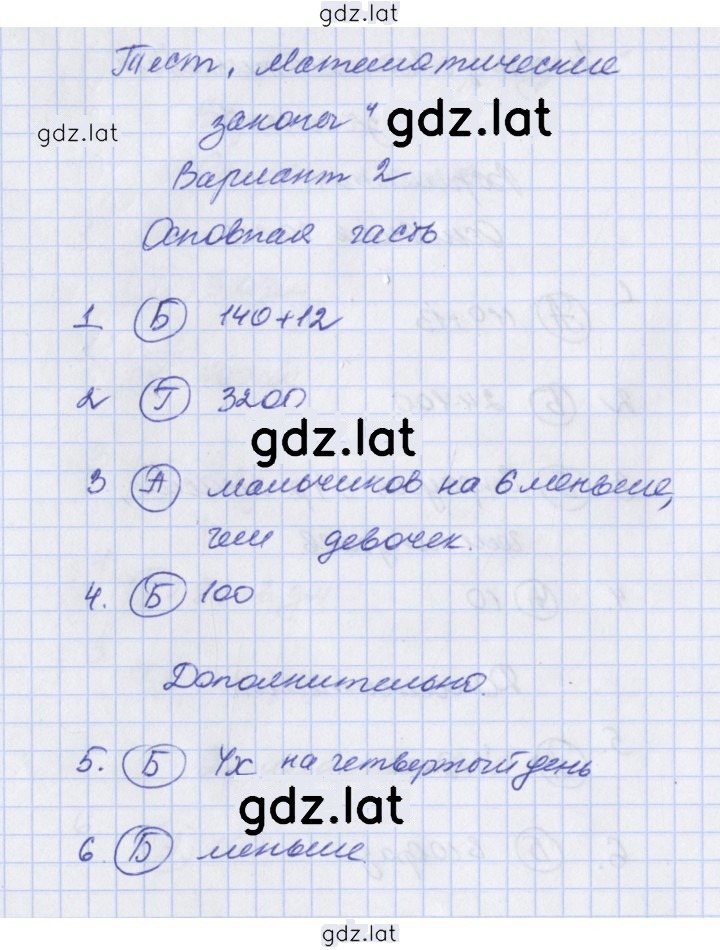 gdz.lat
Тест „Математические
gdz.lat
законы“ gdz.lat
Вариант 2
Основная часть
1 Б 140+12
2 Г 3200
gdz.lat
3 А мальчиков на 6 меньше,
чем девочек.
4. Б 100
Дополнительно.
5. Б 4х на четвертый день
gdz.lat
6 Б меньше
gdz.lat